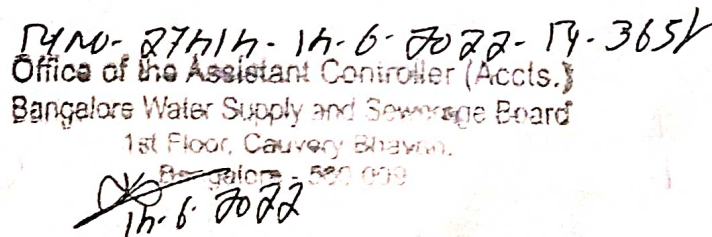 14.6.2022
Office of the Assistant Controller (Accts.)
Bangalore Water Supply and Sewerage Board
1st Floor, Cauvery Bhavan,
Bangalore - 560 009
14.6.2022